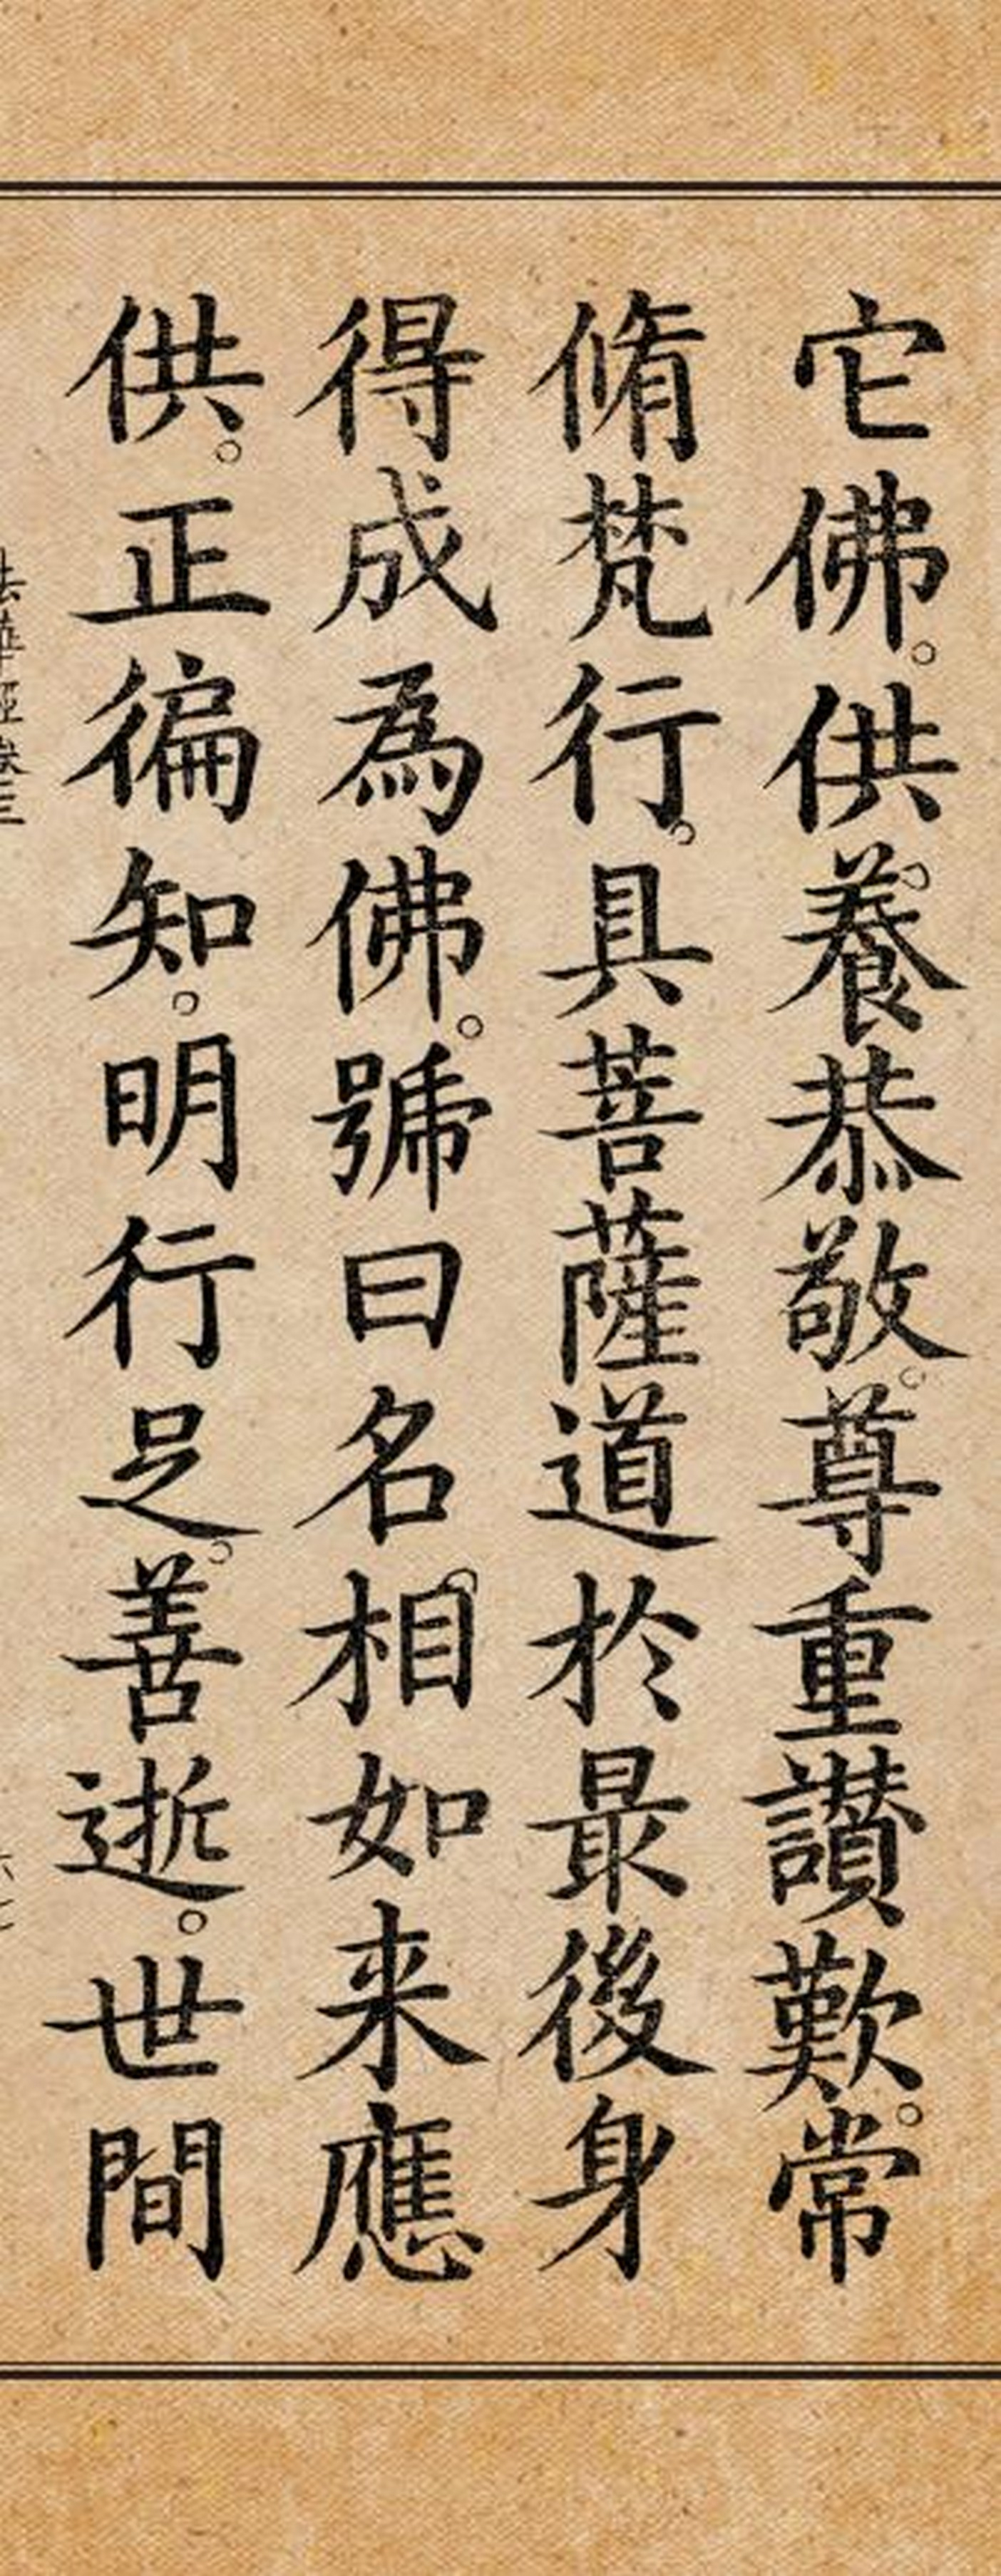 它佛。供養。恭敬。尊重讚歎。常
脩梵行。具菩薩道於最後身
得成為佛。號曰名相。如来應
供。正徧知。明行足。善逝。世間